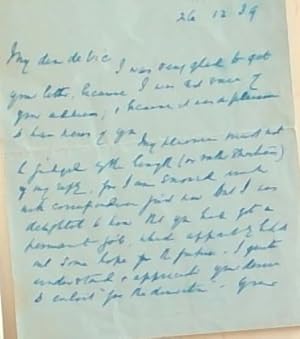 26 12 39
My dear de Vic
I was very glad to get
your letter, because I was not sure of
your address, & because it was a pleasure
to have news of you
My pleasure must not
be judged by the length (or rather shortness)
of my reply, for I am snowed under
with correspondence just now but I was
delighted to hear that you have got a
permanent job, which apparently holds
out some hope for the future. I quite
understand & appreciate your desire
to enlist "for the duration"